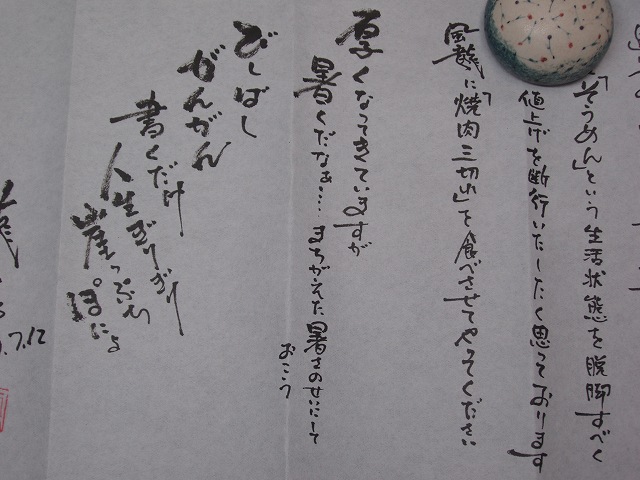 「そうめん」という生活状態を脱脚すべく
値上げを断行いたしたく思っております
風龍に「焼肉三切れ」を食べさせてやってください
厚くなってきていますが
暑くだなぁ…まちがえた暑さのせいにして
おこう
びしばし
がんがん
書くだけ
人生ぎりぎり
崖っぷち
ぽにょ
.7.12